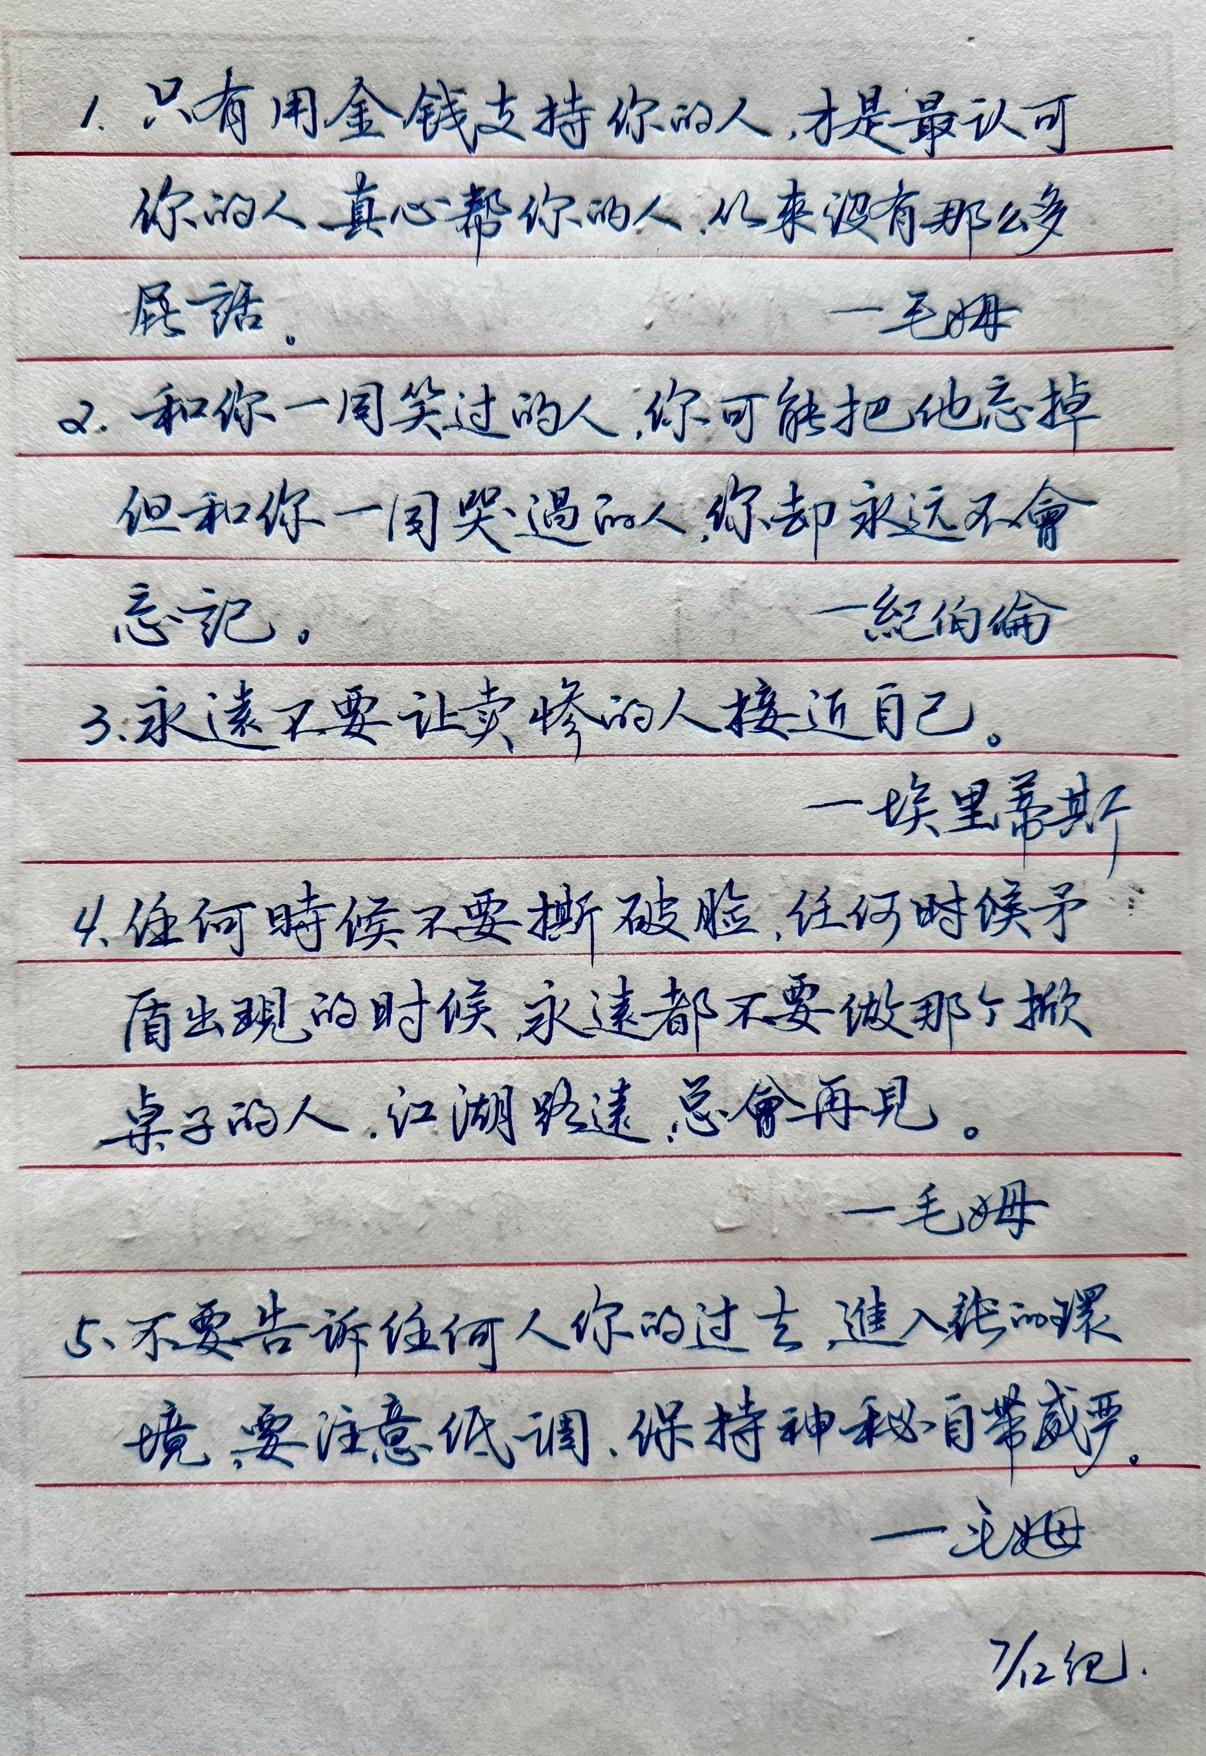 1. 只有用金钱支持你的人,才是最认可
你的人真心帮你的人,从来没有那么多
屁話。 一毛姆
2. 和你一同笑过的人,你可能把他忘掉
但和你一同哭過的人,你却永远不會
忘記。 一紀伯倫
3.永遠不要让卖惨的人接近自己。
一埃里蒂斯
4、任何時候不要撕破脸,任何时候矛
盾出現的时候,永遠都不要做那个掀
桌子的人,江湖路遠,总會再見。
一毛姆
5、不要告訴任何人你的过去,進入新的環
境,要注意低调、保持神秘自带威严。
一毛姆
7/12纪.